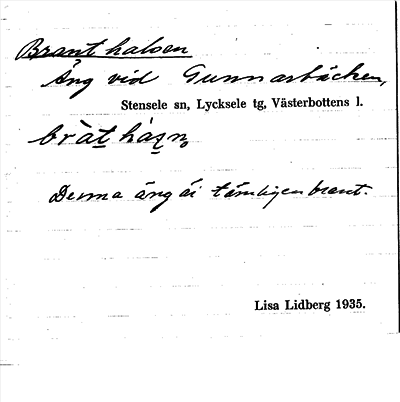 Brant halsen
Äng vid Gunnarbäcken,
Stensele sn, Lycksele tg, Västerbottens l.
Denna äng är tämligen brant.
Lisa Lidberg 1935.